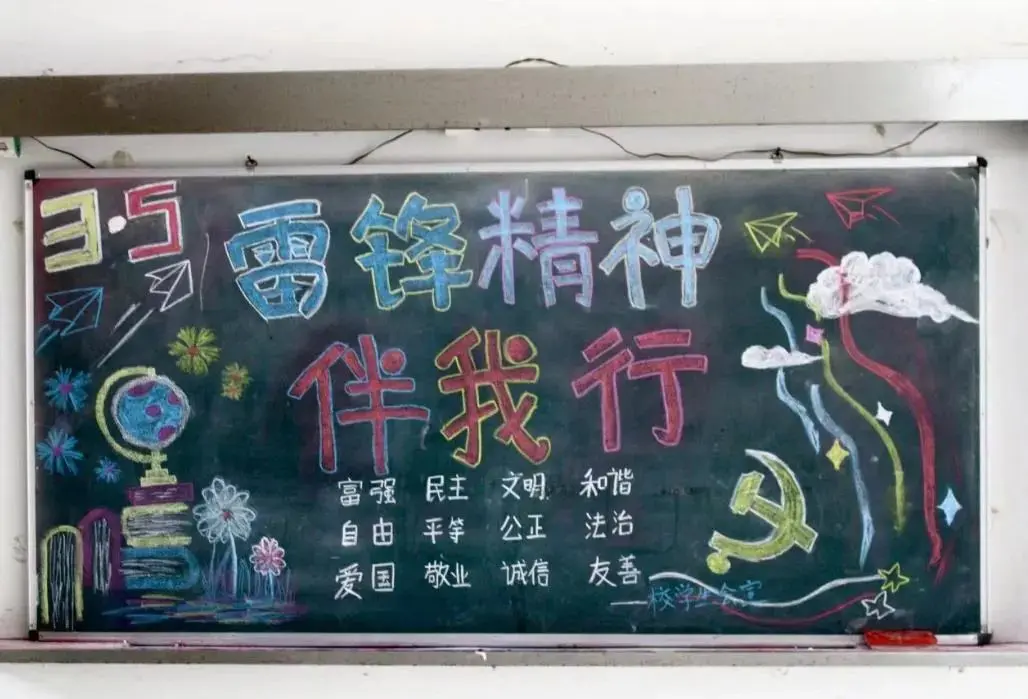 3·5
雷锋精神
伴我行
富强 民主 文明 和谐
自由 平等 公正 法治
爱国 敬业 诚信 友善
——校学生会宣